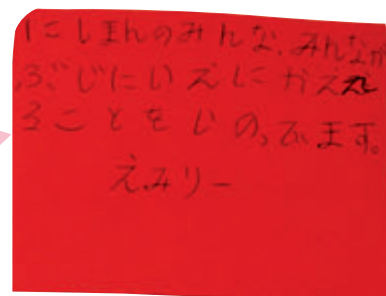 にしほんのみんな、みんなが
ぶじにいえにかえれ
ることをいのってます。
えみりー